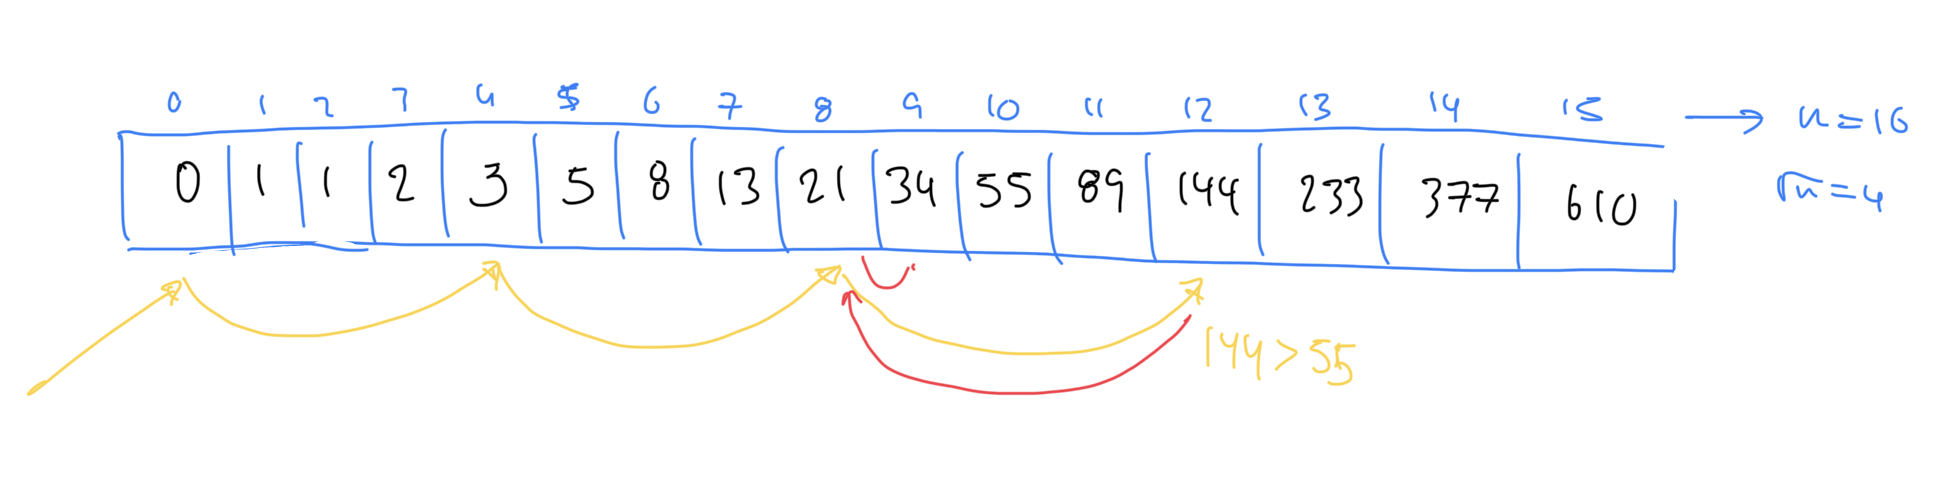 0 1 2 3 4 5 6 7 8 9 10 11 12 13 14 15 → n=16
0 1 1 2 3 5 8 13 21 34 55 89 144 233 377 610
√n=4
144>55